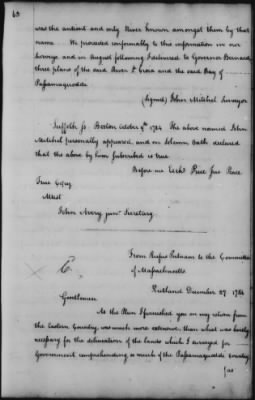 60
was the antient and only River known amongst them by that
name — We proceeded conformably to this information in our
surveys and in August following I delivered to Governor Bernard
three plans of the said River St Croix and the said Bay of
Passamaquodda
(signed) John Mitchel Surveyor
Suffolk ss Boston October 9th 1784 The above named John
Mitchel personally appeared, and on Solemn Oath declared
that the above by him Subscribed is true
Before me Ezekl Price Jus Peace
True Copy
Attest
John Avery junr Secretary
From Rufus Putnam to the Committee
of Massachusetts
Rutland December 27 1784
Gentlemen
As the Plan I furnished you on my return from
the Eastern Country, was much more extensive, than what was barely
necessary for the delineation of the lands which I surveyed for
Government comprehending so much of the Passamaquodda Country
as